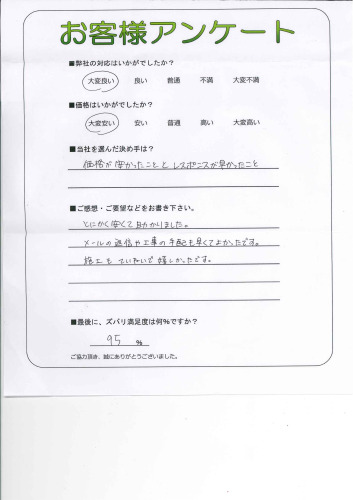 お客様アンケート
■弊社の対応はいかがでしたか?
大変良い 良い 普通 不満 大変不満
■価格はいかがでしたか?
大変安い 安い 普通 高い 大変高い
■当社を選んだ決め手は?
価格が安かったこととレスポンスが早かったこと
■ご感想・ご要望などをお書き下さい。
とにかく安くて助かりました。
メールの返信や工事の手配も早くてよかったです。
施工もていねいで嬉しかったです。
■最後に、ズバリ満足度は何%ですか?
95 %
ご協力頂き、誠にありがとうございました。